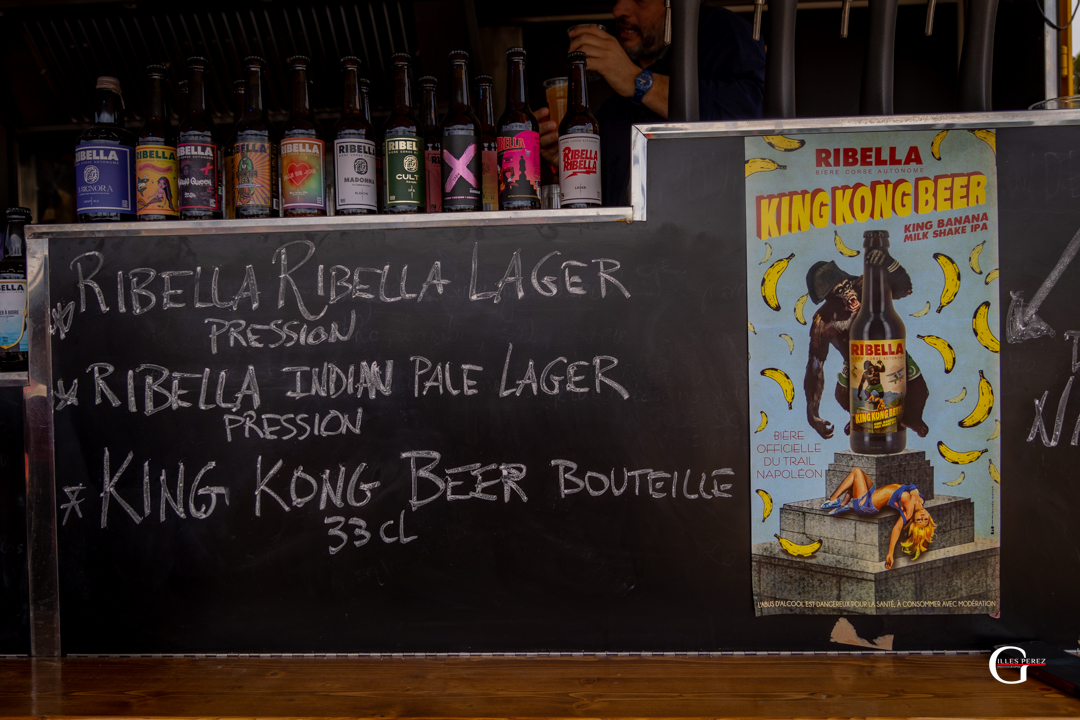 RIBELLA
RIBELLA
RIBELLA
RIBELLA
RIBELLA
RIBELLA
MADONNA
RIBEL
CULT
RIBELLA
RIBELLA
RIBELLA
LAGER
RIBELLA RIBELLA LAGER
PRESSION
RIBELLA INDIAN PALE LAGER
PRESSION
KING KONG BEER BOUTEILLE
33 CL
RIBELLA
BIÈRE CORSE AUTONOME
KING KONG BEER
KING BANANA
MILK SHAKE IPA
RIBELLA
KING KONG BEER
BIÈRE
OFFICIELLE
DU TRAIL
NAPOLÉON
L'ABUS D'ALCOOL EST DANGEREUX POUR LA SANTÉ, À CONSOMMER AVEC MODÉRATION
GILLES PEREZ